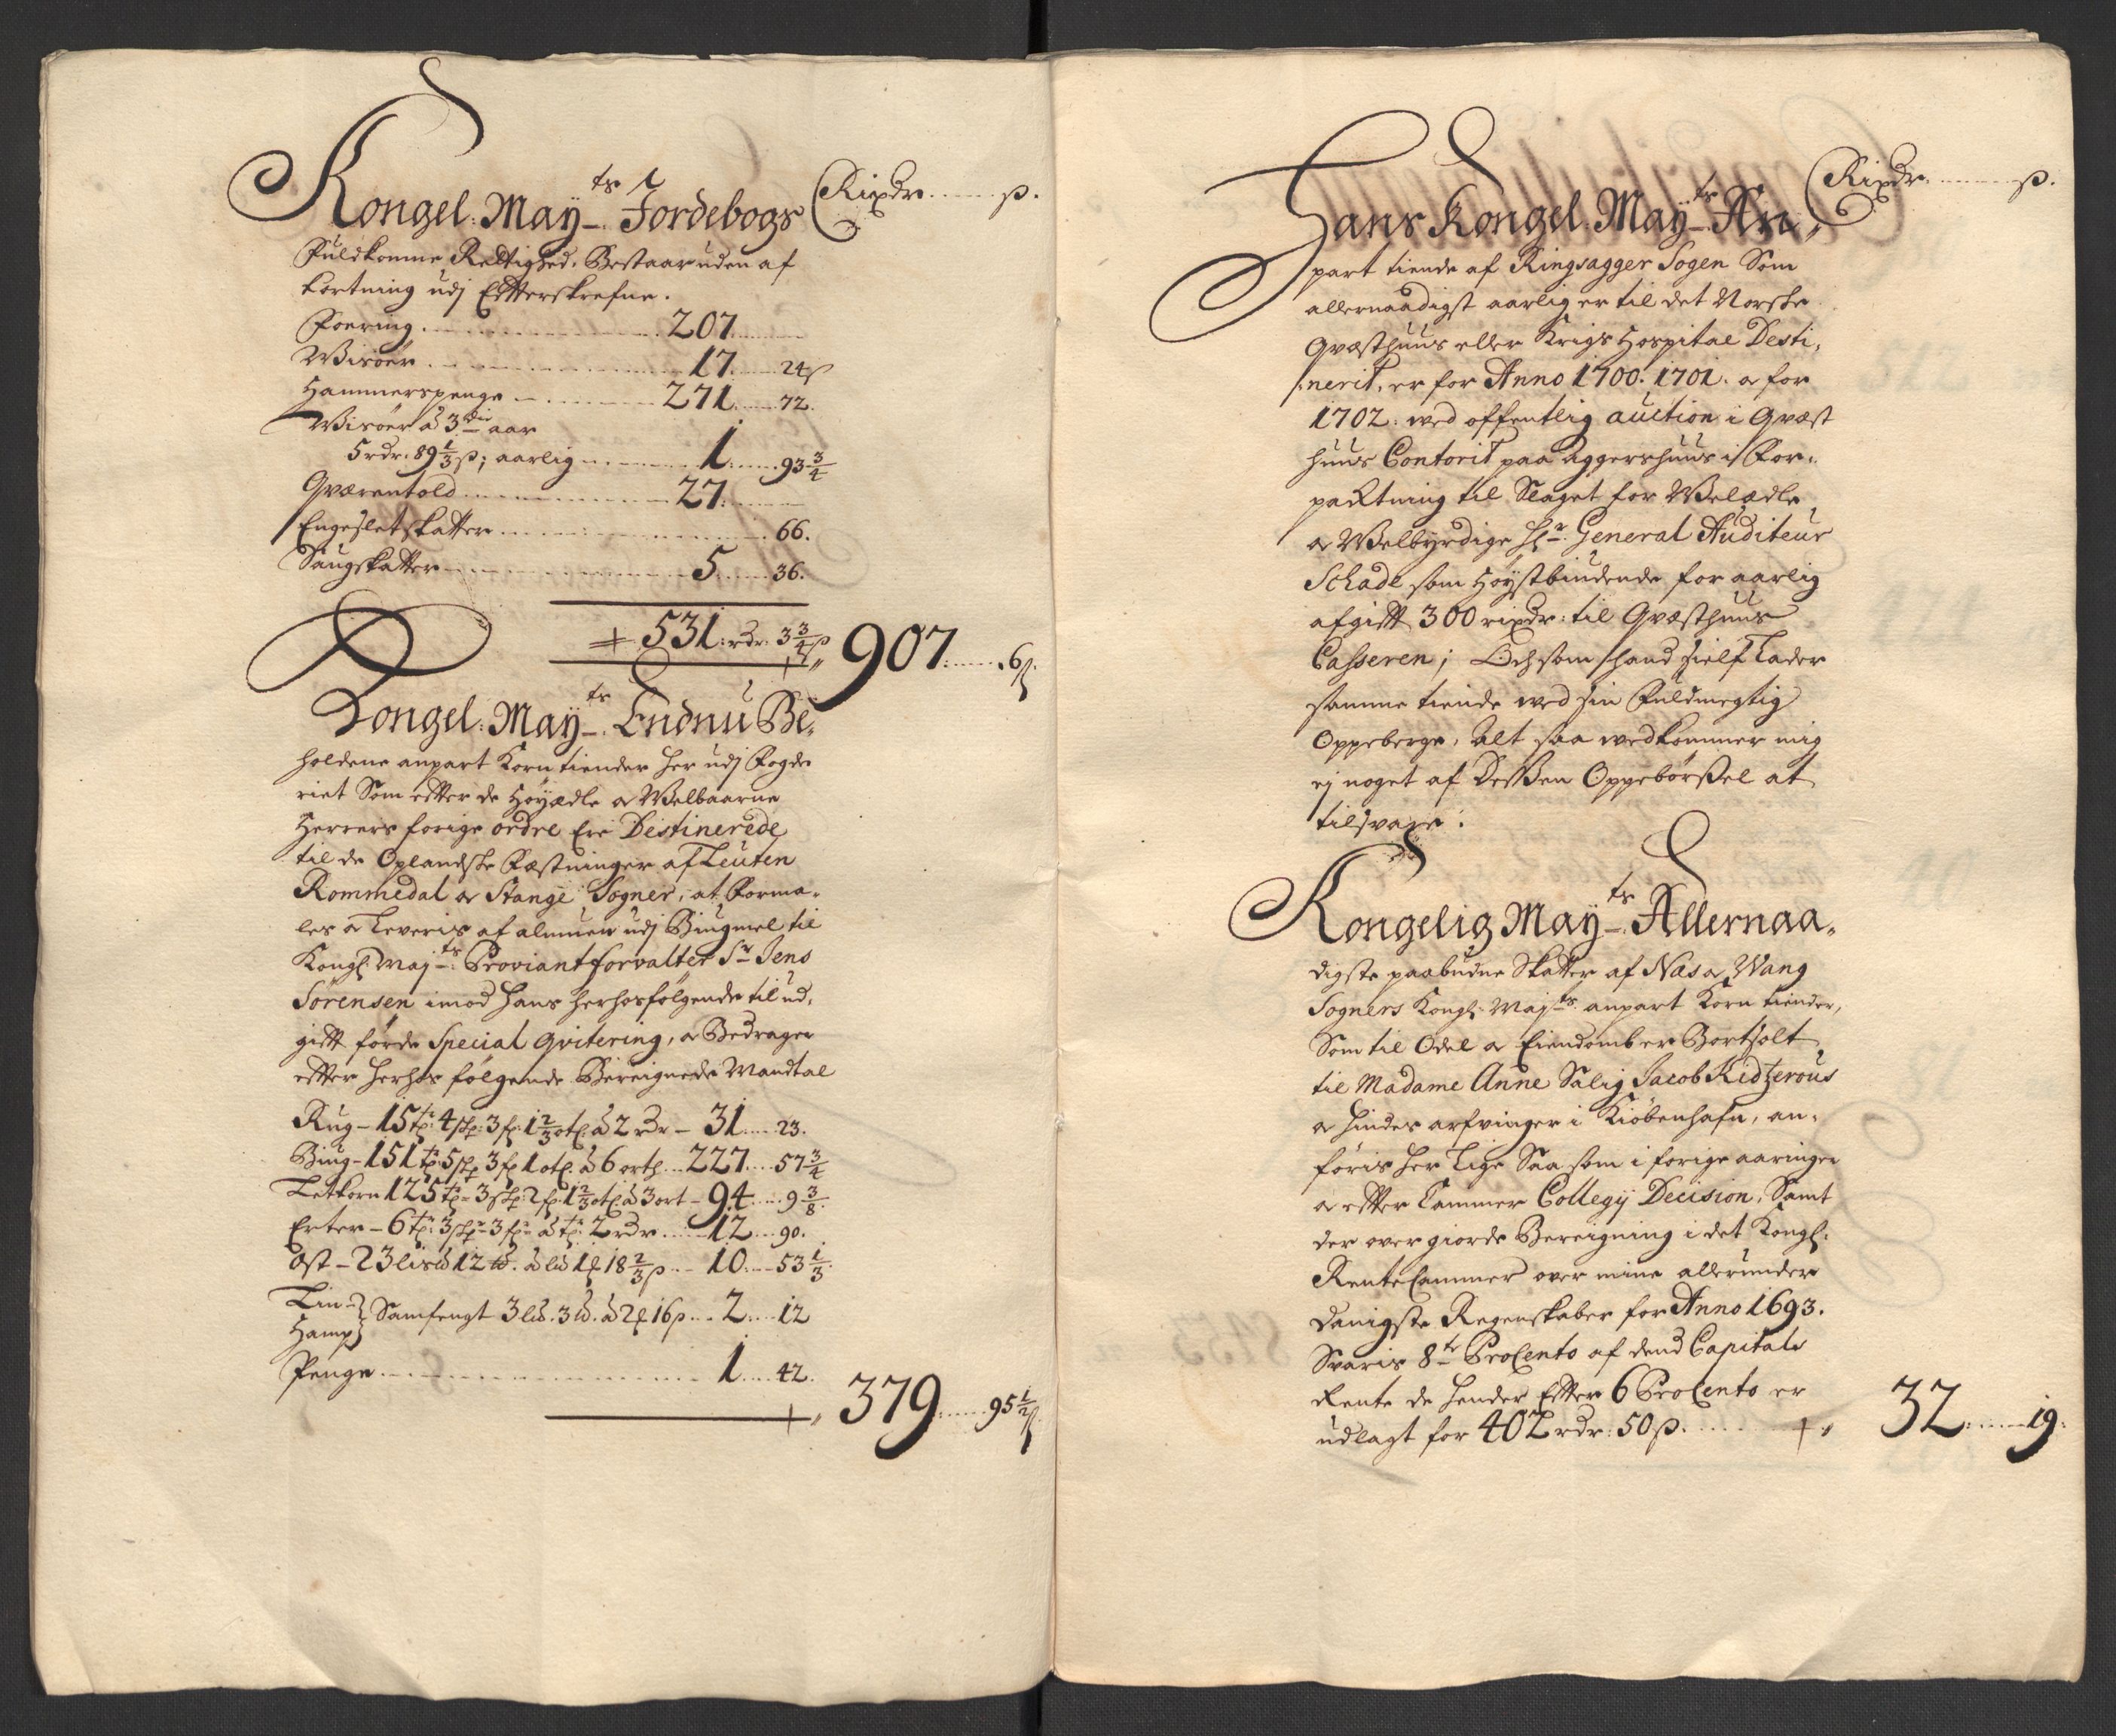 Kongel: May_ts Jordebogs Rixdr ...... β.
Fuldkomne Rettighed. Bestaar uden af
kortning udj Effterskrefne.
Foering ........ 207 ........
Wisöer ........ 17 ...... 24 β
Hammerspenge ........ 271 ...... 72.
Wisöer à 3die aar
5 rdr. 89 1/3 β; aarlig ........ 1 ...... 93 3/4
Qværentold ........ 27 ......
Engesletskatter ........ 66.
Saugskatter ........ 5 ...... 36.
531: rdr 3 3/4 β 907 ...... 6 β.
Kongel: May_ts Endnu Be,
holdene anpart Korn tiender her udj Fogde
riet Som effter de Höyædle og Welbaarne
Herrers forige ordre Ere Destinerede
til de Oplandske Fæstninger af Leuten
Rommedal og Stange Sogner, at Forma,
les og Leveris af almuen udj Biugmel til
Kongl: May_ts Proviantforvalter Sr Jens
Sörensen imod hans herhosfölgende til ud,
gifft förde Special qvitering, og Bedrager
effter herhos fölgende Bereignede Mandtal
Rug - 15 tr: 4 skp: 3 fr: 1 2/3 otl: à 2 rdr - 31 .... 23.
Biug - 151 tr: 5 skp 3 fr 1 otl: à 6 orth ... 227 .... 57 3/4
Letkorn 125 tr: 3 skp: 2 fr: 1 2/3 otl à 3 ort - 94 .... 9 3/8.
Erter - 6 tr: 3 skp: 3 fr: à tr: 2 rdr ..... 12 ... 90.
Ost - 23 lis℔ 12 ℔. à l℔ 1 ꝗ 18 2/3 β ... 10 ... 53 1/3.
Lin og
Hamp Samfengt 3 l℔. 3 ℔. à 2 ꝗ 16 β ... 2 .... 12
Penge ........ 1 .... 42.
379 ...... 95 1/2 β
Hans Kongel. May_ts An, Rixdr. ...... β.
part tiende af Ringsagger Sogen Som
allernaadigst aarlig er til det Norske
Qvæsthuus eller Krigs Hospital Desti,
nerit, er for Anno 1700. 1701. og for
1702. ved offentlig auction i Qvæst
huus Contorit paa Aggershuus i For,
pagtning til Slaget for Welædle
og Welbyrdige Hr. General Auditeur
Schade som Höystbiudende for aarlig
afgifft 300 rixdr: til Qvæsthuus
Casseren; Och som hand sielf Lader
samme tiende ved sin Fuldmegtig
Oppeberge, Alt saa vedkommer mig
ej noget af Dessen Oppebörssel at
tilsvare.
Kongelig May_ts Allernaa,
digste paabudne Skatter af Næs og Wang
Sogners Kongl: May_ts anpart Korn tiender,
Som til Odel og Eiendomb er Bortsolt
til Madame Anne Salig Jacob Kidtzerous
og hindes arfvinger i Kiöbenhafn, an,
föris her Lige Saa som i forige aaringer
og effter Cammer Collegij Decision, Samt
der over giorde Bereigning i det Kongl:
RenteCammer over mine allerunder
danigste Regenskaber for Anno 1693.
Svaris 8te ProCento af dend Capitals
Rente de hender Effter 6 ProCento er
udlagt for 402 rdr: 50 β. ..... 32: ..... 19: